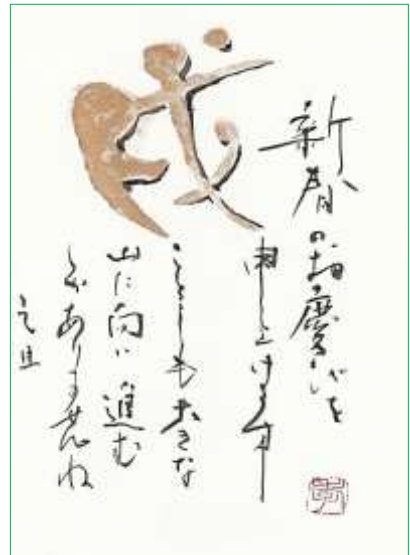 戌
新春のお慶びを
申し上げます
ことしも大きな
山に向い進む
しかありませんね
元旦